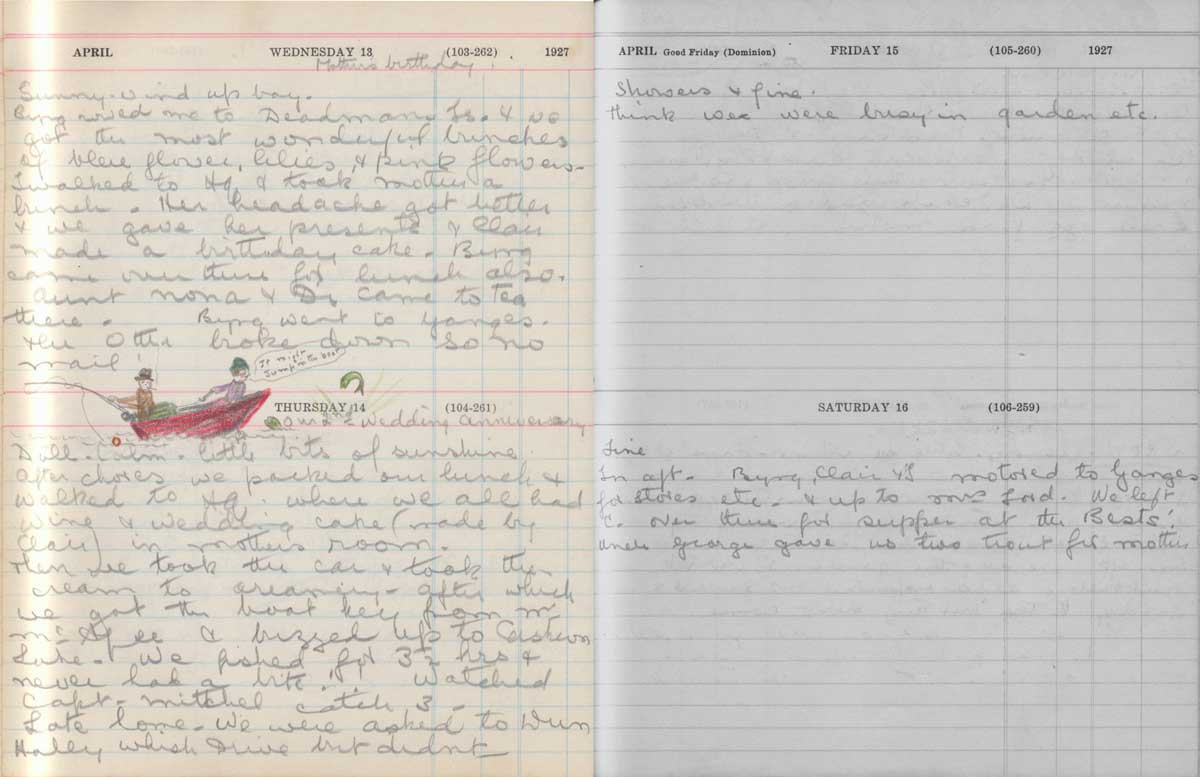 APRIL WEDNESDAY 13 (103-262) 1927
Mothers birthday.
Sunny. wind up bay.
Byng rowed me to Deadmans Is. & we
got the most wonderful bunches
of blue flower, lilies, & pink flowers-
I walked to Hq. & took mother a
bunch. Her headache got better
& we gave her presents & Clair
made a birthday cake. Byng
came over there for lunch also.
Aunt nona & Di came to Tea
there. Byng went to Ganges.
the Otter broke down so no
mail!
It might
Jump in the boat
THURSDAY 14 (104-261)
our 2nd wedding anniversary
Dull-Calm- little bits of sunshine.
After chores we packed our lunch &
walked to Hq. where we all had
wine & wedding cake (made by
Clair) in mothers room.
then we took the car & took the
cream to creamery- after which
we got the boat key from Mr
McAfee & buzzed up to
Lake. We fished for 3½ hrs &
never had a bite!! Watched
Capt- mitchel catch 3-
Late home- We were asked to
whist Drive but didnt
APRIL Good Friday (Dominion) FRIDAY 15 (105-260) 1927
Showers & fine.
think we were busy in garden etc.
SATURDAY 16 (106-259)
Fine
In aft- Byng, Clair & I motored to Ganges
for stores etc. & up to Mrs Lord. We left
C. over there for supper at the Bests'.
Uncle George gave us two trout for mother